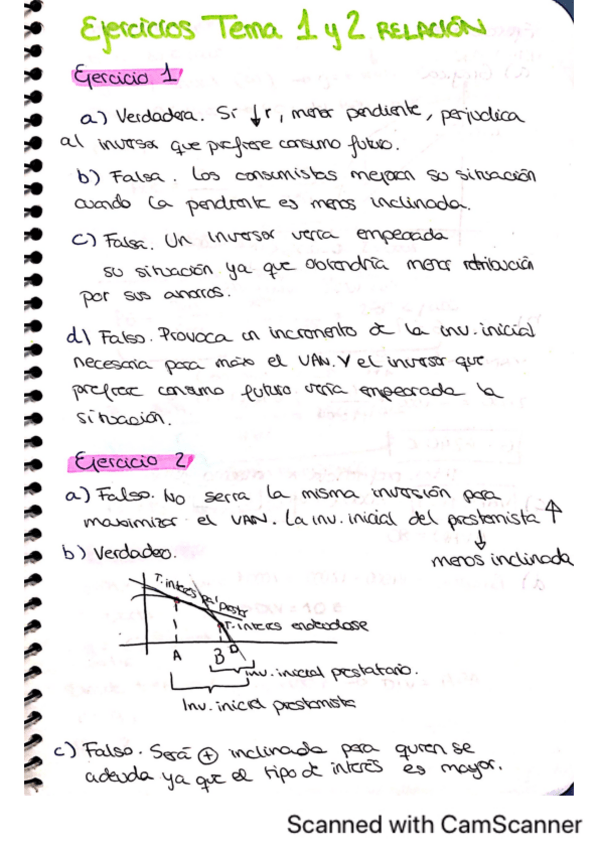 Ejercicios Tema 1 y 2 RELACIÓN
Ejercicio 1
a) Verdadera. Si ↓r, menor pendiente, perjudica
al inversor que prefiere consumo futuro.
b) Falsa. Los consumistas mejoran su situación
cuando la pendiente es menos inclinada.
c) Falsa. Un inversor vería empeorada
su situación ya que obtendría menor retribución
por sus ahorros.
d) Falso. Provoca un incremento de la inv. inicial
necesaria para max el VAN. Y el inversor que
prefiere consumo futuro vería empeorada la
situación.
Ejercicio 2
a) Falso. No sería la misma inversión para
maximizar el VAN. La inv. inicial del prestamista ↑
↓
menos inclinada
b) Verdadero.
T. interés
T. interés endeudarse
A B D
inv. inicial prestatario.
Inv. inicial prestamista
c) Falso. Será ⊕ inclinada para quien se
adeuda ya que el tipo de interés es mayor.
Scanned with CamScanner